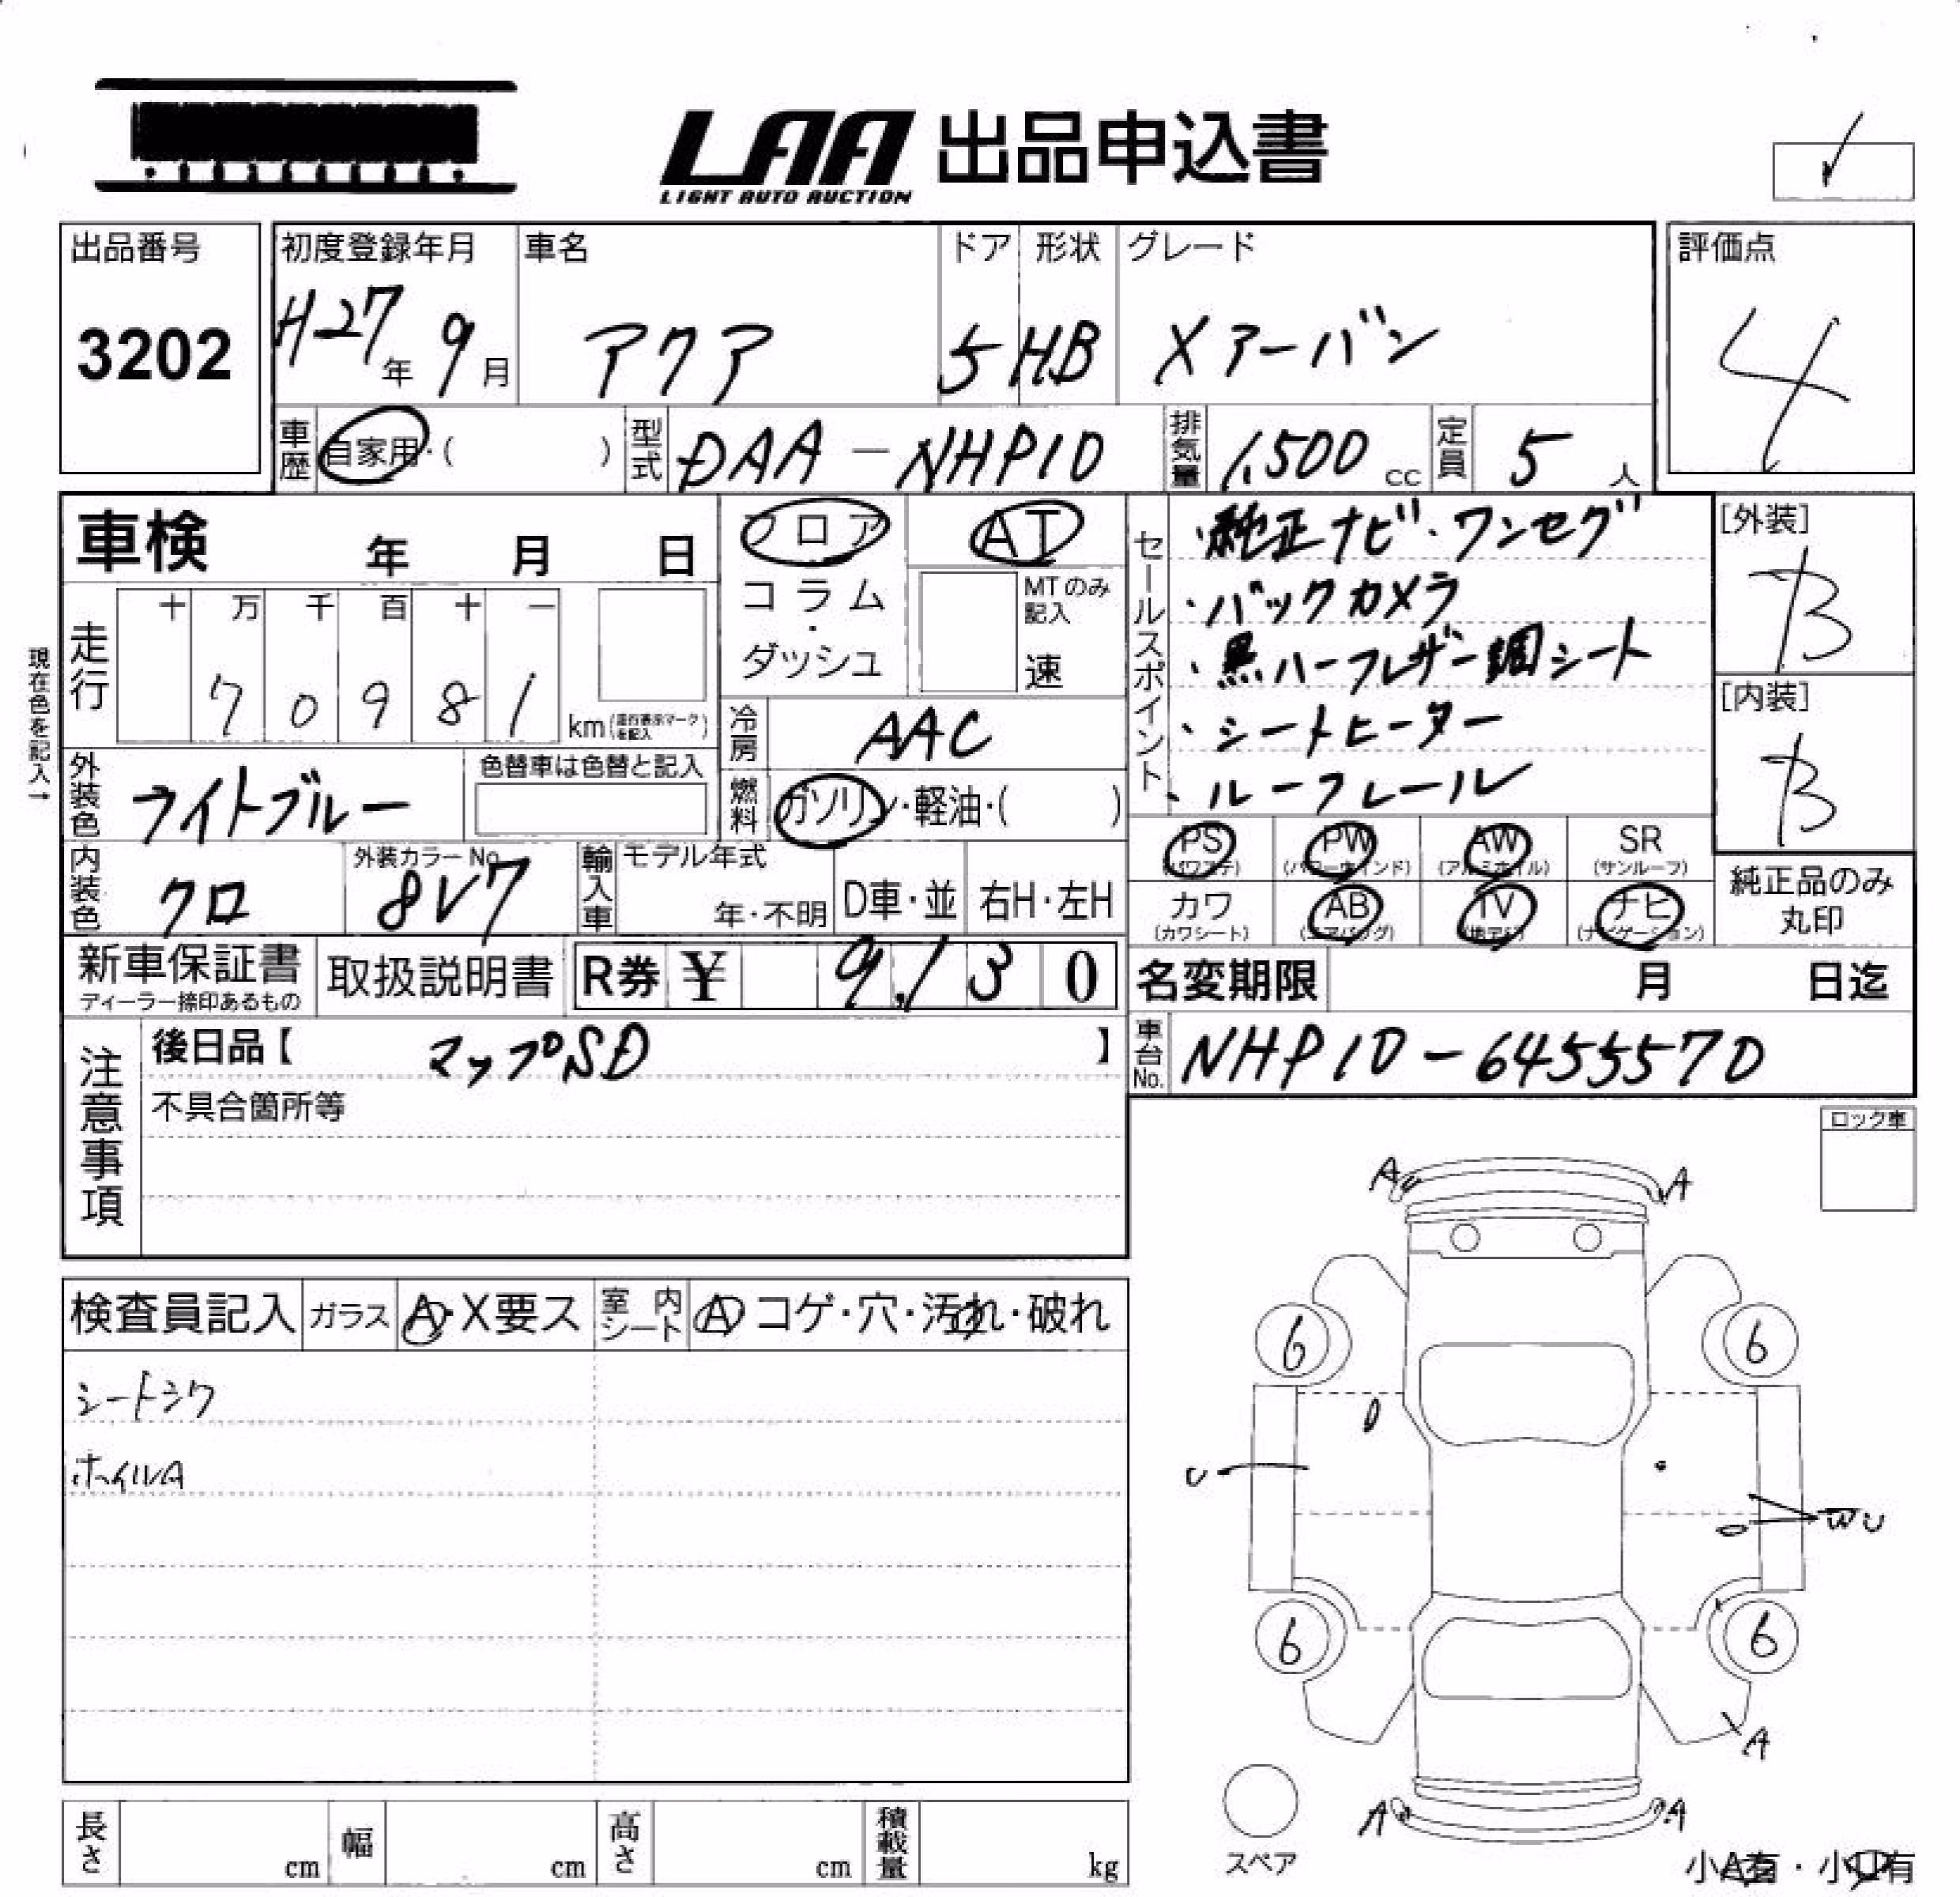 LAA 出品申込書
LIGHT AUTO AUCTION
出品番号
3202
初度登録年月
H27年 9月
車名
アクア
ドア
5
形状
HB
グレード
Xアーバン
評価点
4
車歴
自家用・( )
型式
DAA-NHP10
排気量
1,500 cc
定員
5 人
車検 年 月 日
フロア
コラム・ダッシュ
AT
MTのみ記入
速
セールスポイント
・純正ナビ・ワンセグ
・バックカメラ
・黒ハーフレザー調シート
・シートヒーター
・ルーフレール
[外装]
B
[内装]
B
現在色を記入→
走行
十 万 千 百 十 一
7 0 9 8 1
km(走行表示マークを記入)
冷房
AAC
外装色
ライトブルー
色替車は色替と記入
燃料
ガソリン・軽油・( )
内装色
クロ
外装カラーNo.
8V7
輸入車
モデル年式
年・不明
D車・並
右H・左H
PS (パワステ)
PW (パワーウィンド)
AW (アルミホイル)
SR (サンルーフ)
カワ (カワシート)
AB (エアバッグ)
TV (地デジ)
ナビ (ナビゲーション)
純正品のみ
丸印
新車保証書
ディーラー捺印あるもの
取扱説明書
R券 ¥ 9,130
名変期限 月 日迄
注意事項
後日品【 マップSD 】
車台No.
NHP10-6455570
不具合箇所等
ロック車
検査員記入
ガラス
A・X要ス
室内シート
A コゲ・穴・汚れ・破れ
シートシワ
ホイルA
A A
6 6
U
WU
6 6
A
A A
スペア
小A有・小U有
長さ cm
幅 cm
高さ cm
積載量 kg